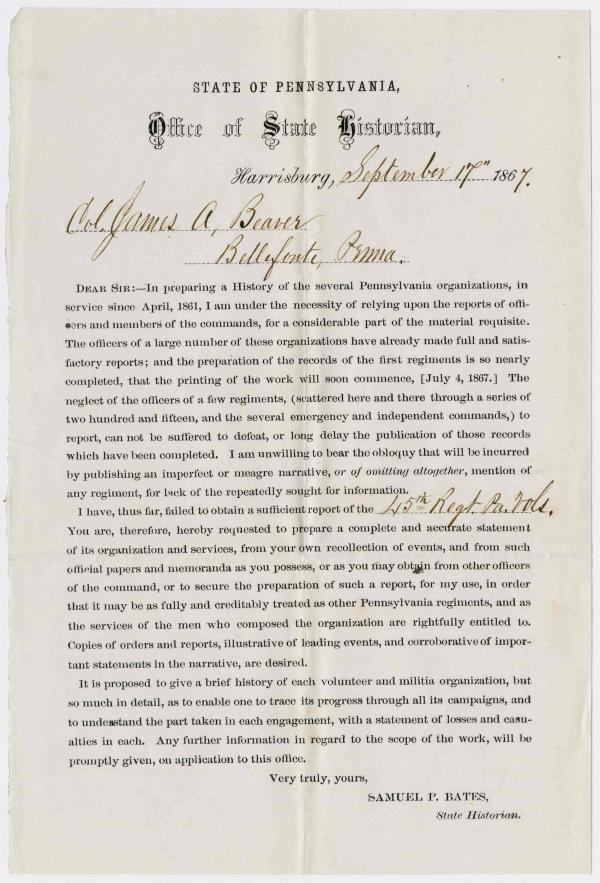 STATE OF PENNSYLVANIA,
Office of State Historian,
Harrisburg, September 17" 1867.
Col. James A, Beaver
Bellefonte, Penna.
DEAR SIR:—In preparing a History of the several Pennsylvania organizations, in
service since April, 1861, I am under the necessity of relying upon the reports of offi-
cers and members of the commands, for a considerable part of the material requisite.
The officers of a large number of these organizations have already made full and satis-
factory reports; and the preparation of the records of the first regiments is so nearly
completed, that the printing of the work will soon commence, [July 4, 1867.] The
neglect of the officers of a few regiments, (scattered here and there through a series of
two hundred and fifteen, and the several emergency and independent commands,) to
report, can not be suffered to defeat, or long delay the publication of those records
which have been completed. I am unwilling to bear the obloquy that will be incurred
by publishing an imperfect or meagre narrative, or of omitting altogether, mention of
any regiment, for lack of the repeatedly sought for information.
I have, thus far, failed to obtain a sufficient report of the 45th Regt. Pa. Vols.
You are, therefore, hereby requested to prepare a complete and accurate statement
of its organization and services, from your own recollection of events, and from such
official papers and memoranda as you possess, or as you may obtain from other officers
of the command, or to secure the preparation of such a report, for my use, in order
that it may be as fully and creditably treated as other Pennsylvania regiments, and as
the services of the men who composed the organization are rightfully entitled to.
Copies of orders and reports, illustrative of leading events, and corroborative of impor-
tant statements in the narrative, are desired.
It is proposed to give a brief history of each volunteer and militia organization, but
so much in detail, as to enable one to trace its progress through all its campaigns, and
to understand the part taken in each engagement, with a statement of losses and casu-
alties in each. Any further information in regard to the scope of the work, will be
promptly given, on application to this office.
Very truly, yours,
SAMUEL P. BATES,
State Historian.